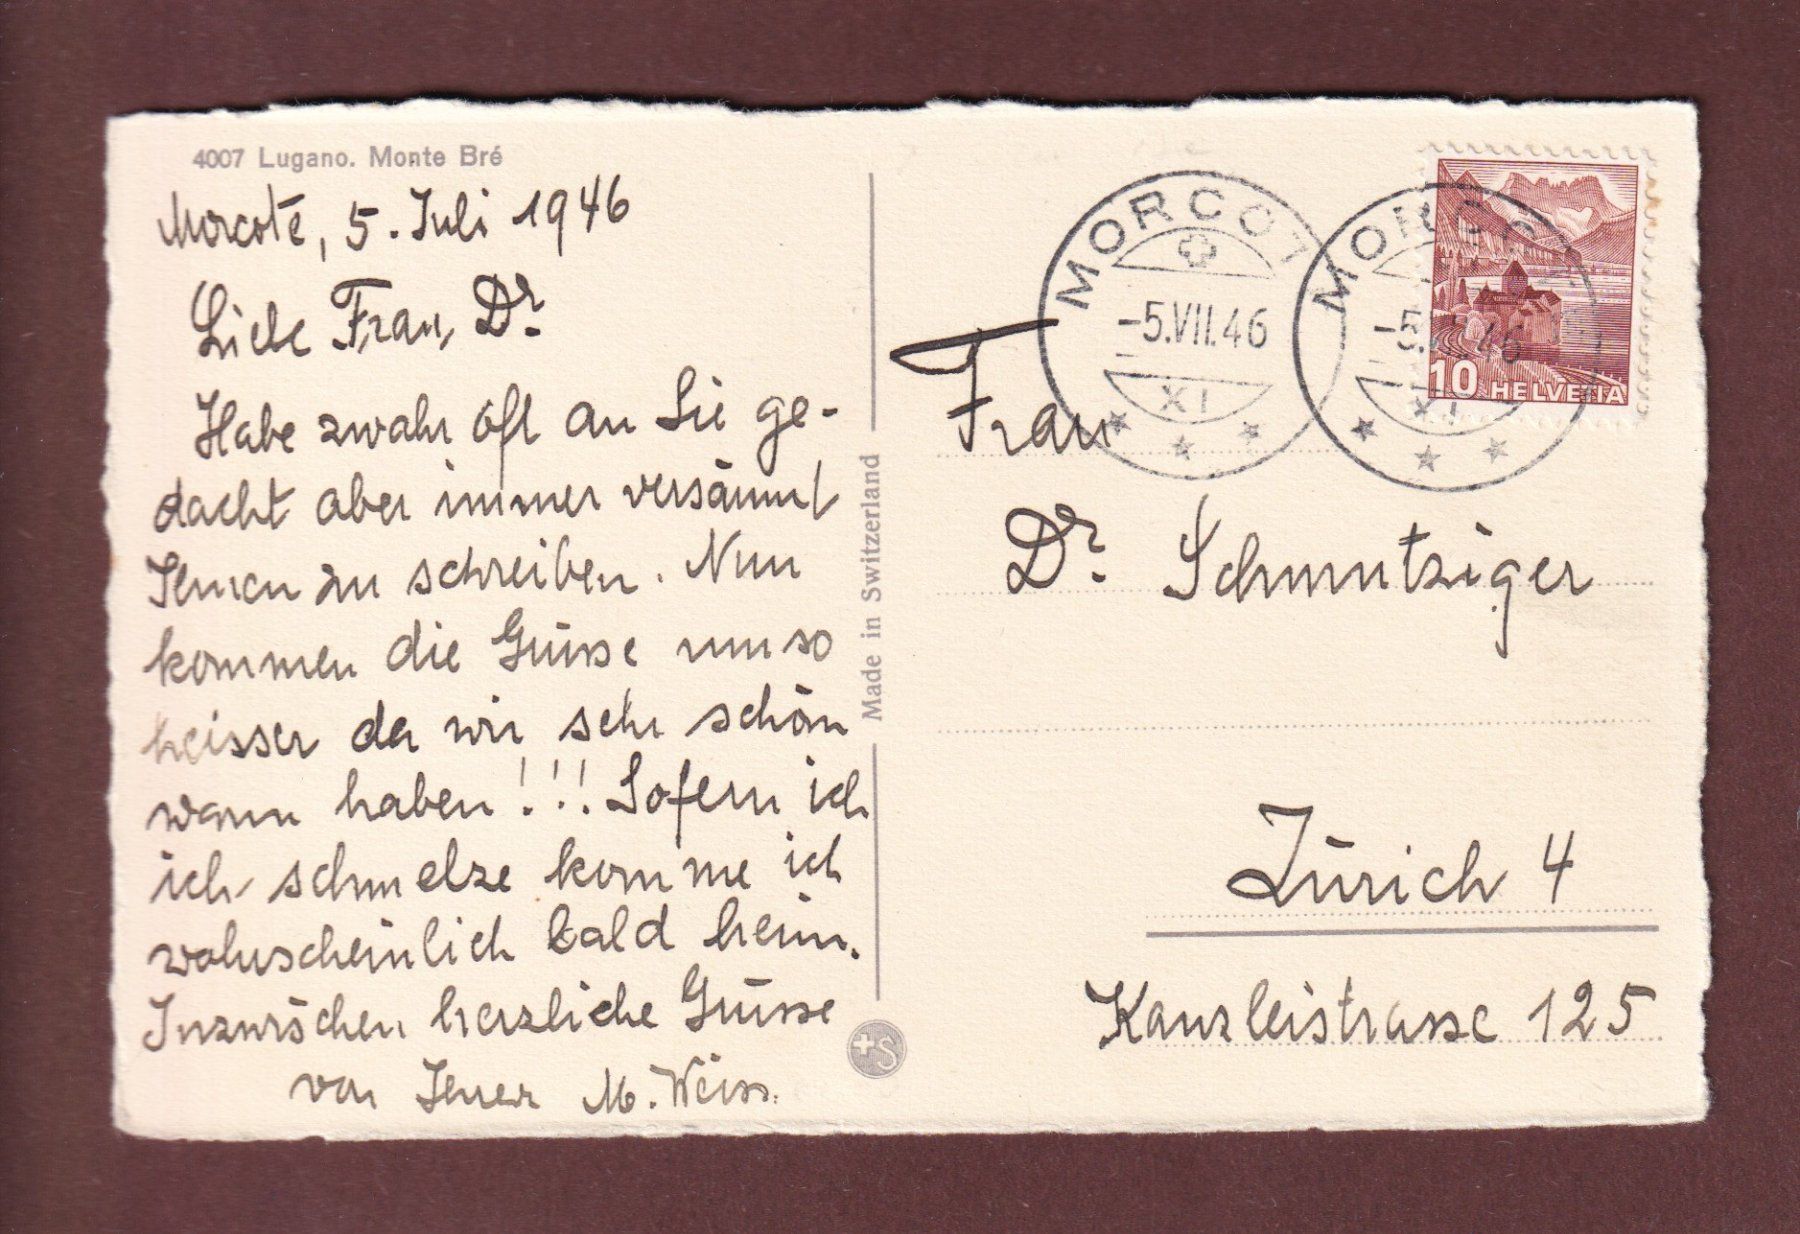 4007 Lugano. Monte Bré
Morcote, 5. Juli 1946
Liebe Frau Dr.
Habe zwahr oft an Sie ge-
dacht aber immer versäumt
Ihnen zu schreiben. Nun
kommen die Grüsse umso
heisser da wir sehr schön
warm haben!!! Sofern ich
ich schmelze komme ich
wahrscheinlich bald heim.
Inzwischen herzliche Grüsse
von Ihrer M. Weiss.
Made in Switzerland
+S
MORCOTE
-5.VII.46
XI
MORCOTE
-5.VII.46
XI
10 HELVETIA
Frau
Dr. Schmutziger
Zürich 4
Kanzleistrasse 125